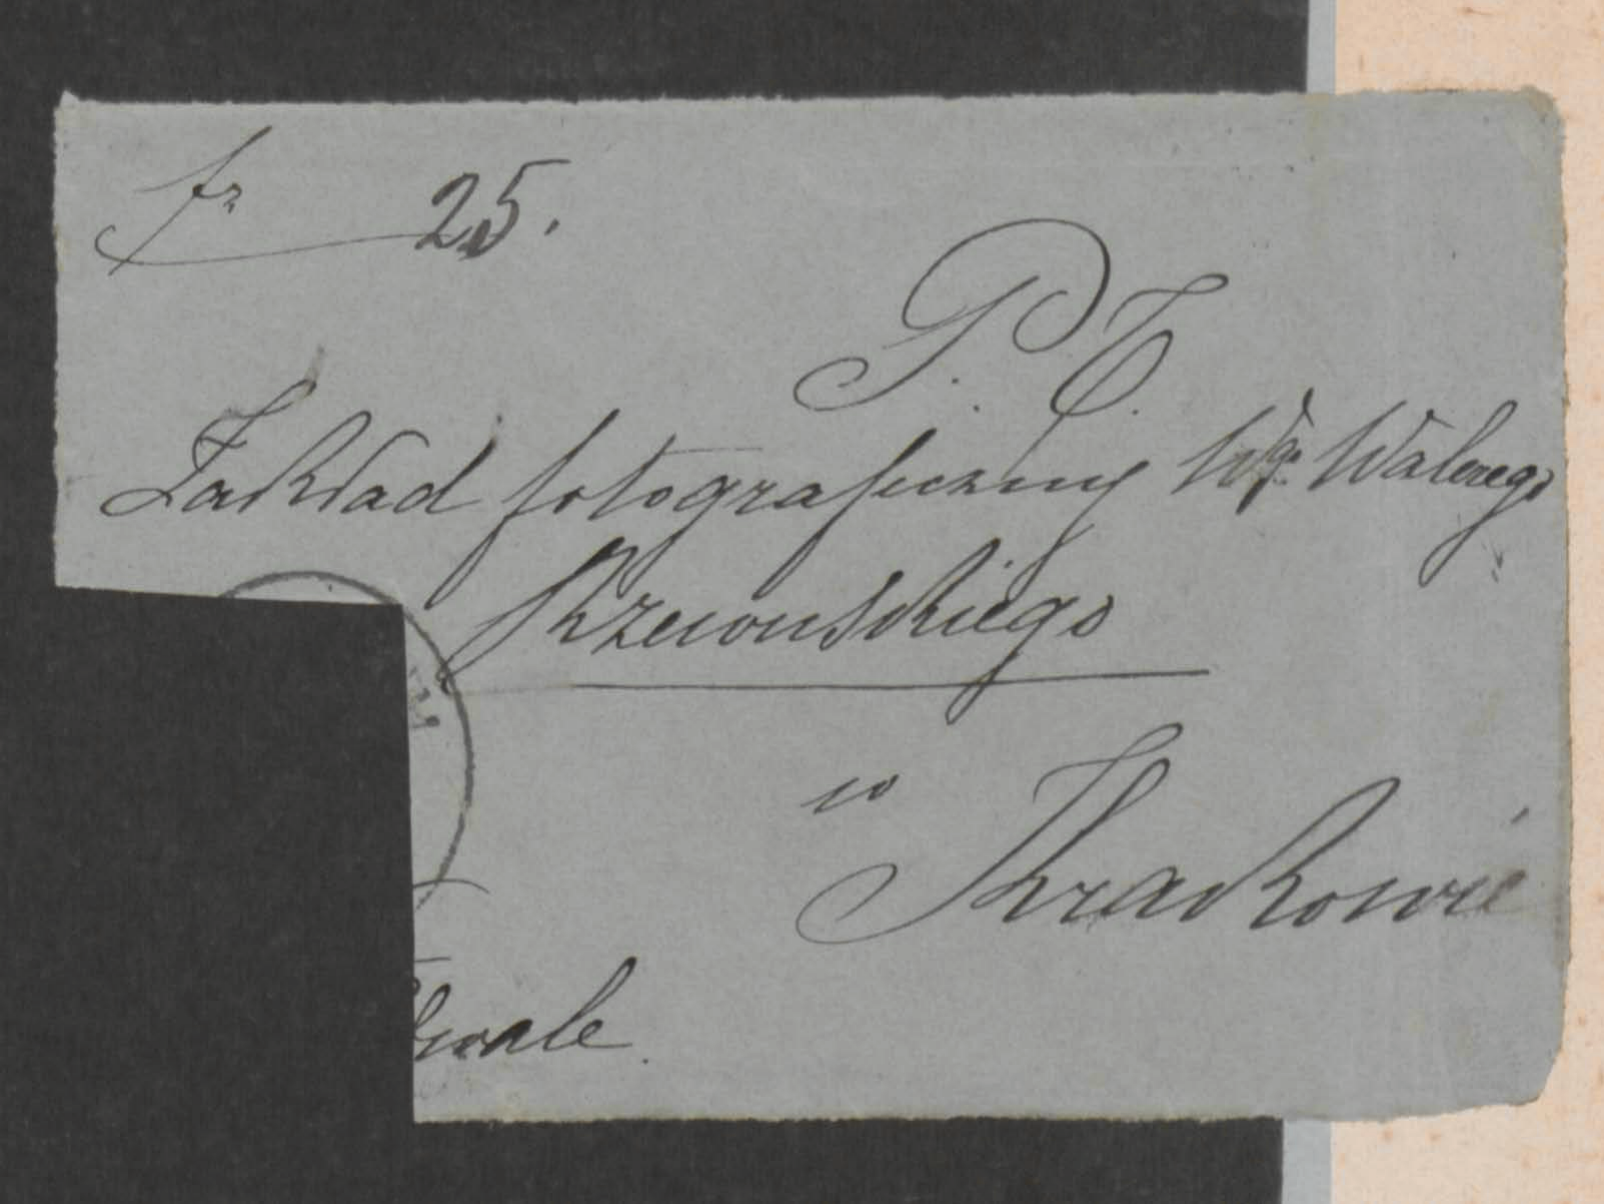 fr 25.
P. T.
Zakład fotograficzny Wgo Walerego
Rzewuskiego
w
Krakowie